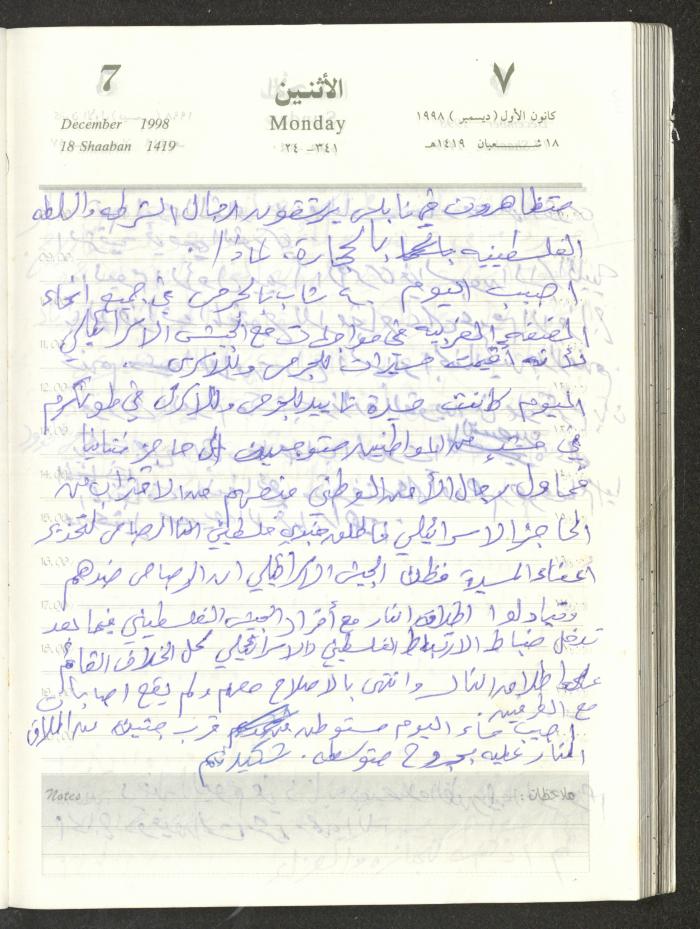 7
الأثنين
٧
December 1998
Monday
كانون الأول (ديسمبر) ١٩٩٨
18 Shaaban 1419
٣٤١-٢٤
١٨ شعبان ١٤١٩هـ
متظاهرون في نابلس يرشقون رجال الشرطه والسلطه
الفلسطينيه بالحجارة. لماذا!
اصيب اليوم شاب بالجرحى في جميع انحاء
الضفه الغربيه في مواجهات مع الجيش الاسرائيلي
لأنه أقيمت مسيرات للجرحى وللاسرى.
اليوم كانت مسيرة تاييد للجرحى وللاسرى في طولكرم
في من المواطنين متوجهين الى حاجز نتانيا
فحاول رجال الأمن الوطني منعهم من الاقتراب من
الحاجز الاسرائيلي فاطلق جندي فلسطيني النار الرصاص لتحذير
اعضاء المسيرة فظن الجيش الاسرائيلي ان الرصاص ضدهم
وتبادلوا اطلاق النار مع أفراد الجيش الفلسطيني فيما بعد
تدخل ضباط الارتباط الفلسطيني والاسرائيلي لحل الخلاف القائم
اطلاق النار وانتهى بالاصلاح معهم ولم يقع اصابات
مع الطرفين.
اصيب مساء اليوم مستوطن قرب جنين من اطلاق
النار عليه بجروح متوسطه.
Notes
ملاحظات: